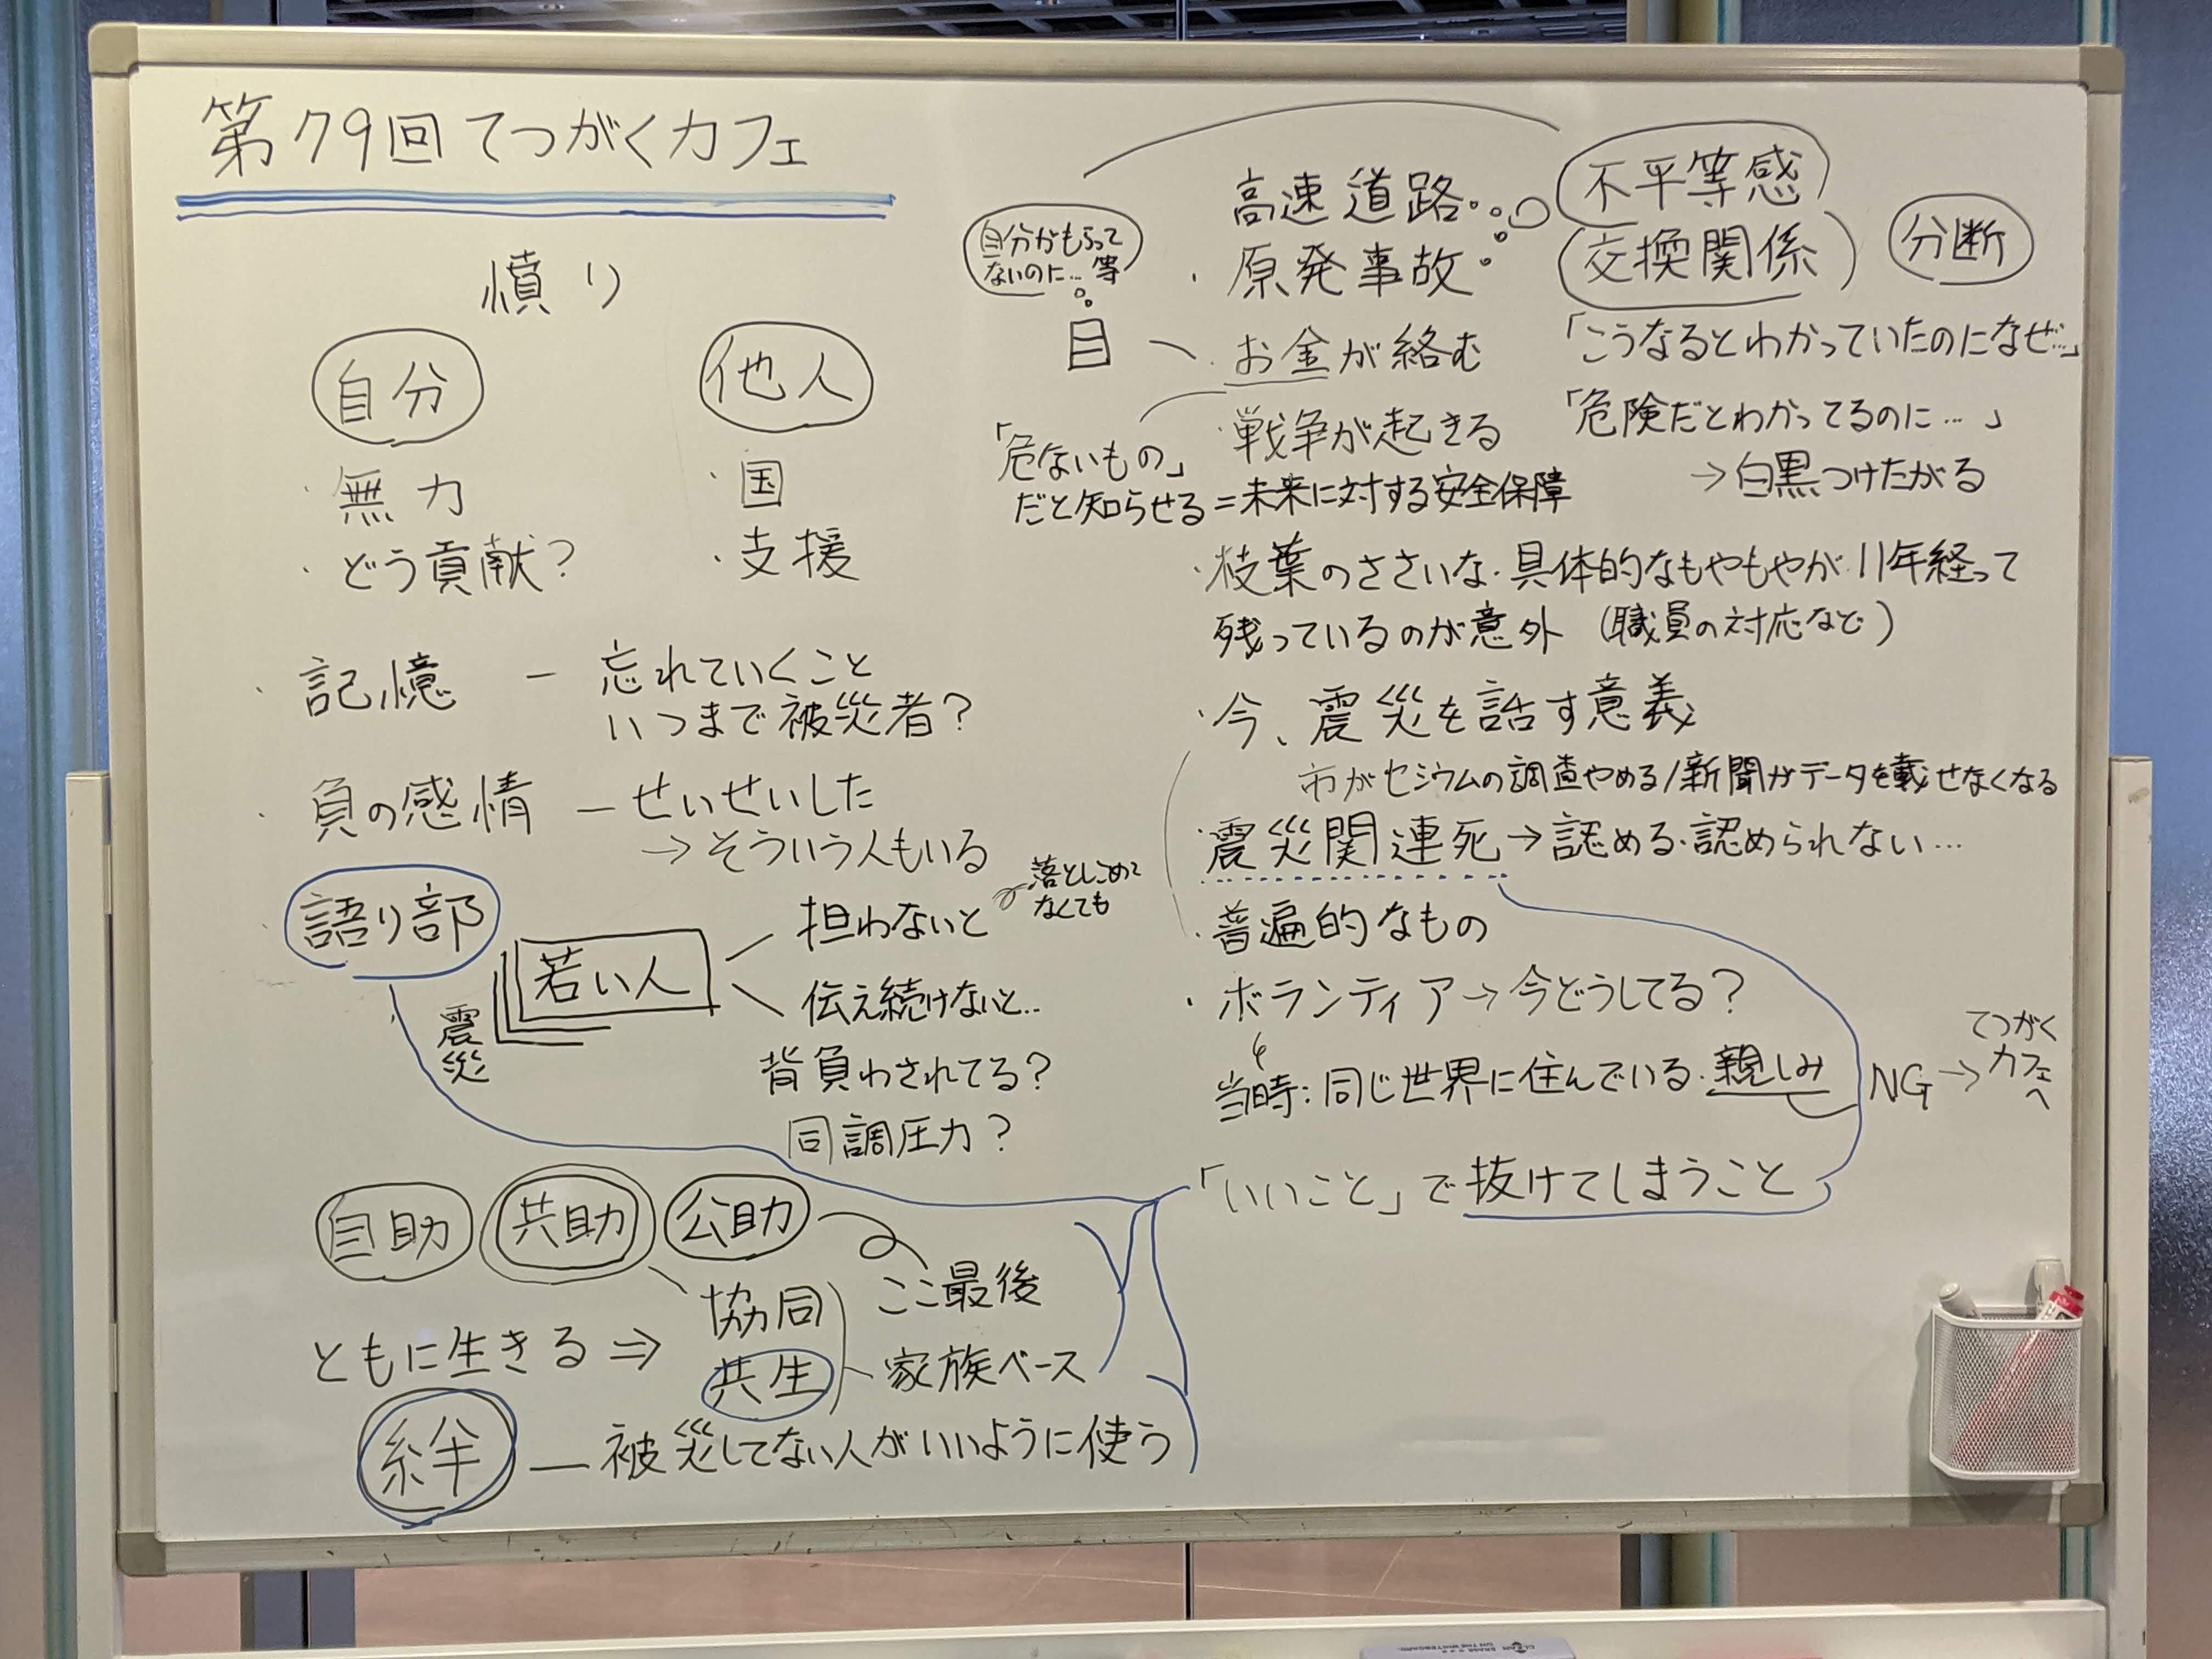 第79回てつがくカフェ
憤り
自分
・無力
・どう貢献?
他人
・国
・支援
・記憶 — 忘れていくこと
いつまで被災者?
・負の感情 — せいせいした
→そういう人もいる
・語り部
震災
若い人
担わないと
落としこめて
なくても
伝え続けないと…
背負わされてる?
同調圧力?
自助 共助 公助
ここ最後
ともに生きる ⇒ 協同
共生
家族ベース
絆 — 被災してない人がいいように使う
高速道路
・原発事故
不平等感
交換関係
分断
自分がもらって
ないのに…等
目
・お金が絡む
「こうなるとわかっていたのになぜ…」
「危険だとわかってるのに…」
→白黒つけたがる
・戦争が起きる
「危ないもの」
だと知らせる=未来に対する安全保障
・枝葉のささいな・具体的なもやもやが11年経って
残っているのが意外 (職員の対応など)
・今、震災を話す意義
市がセシウムの調査やめる/新聞がデータを載せなくなる
・震災関連死→認める・認められない…
・普遍的なもの
・ボランティア→今どうしてる?
当時:同じ世界に住んでいる・親しみ
NG→てつがく
カフェ
へ
「いいこと」で抜けてしまうこと